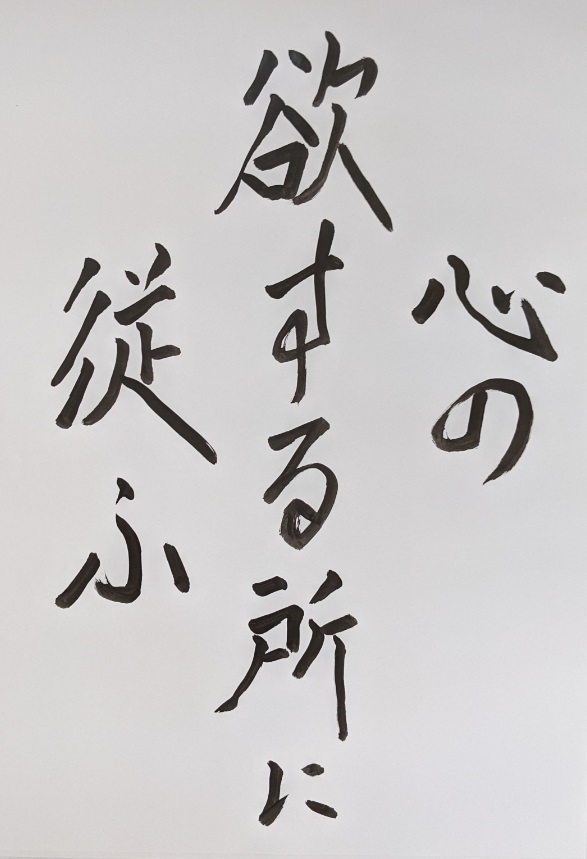 心の
欲する所に
従ふ